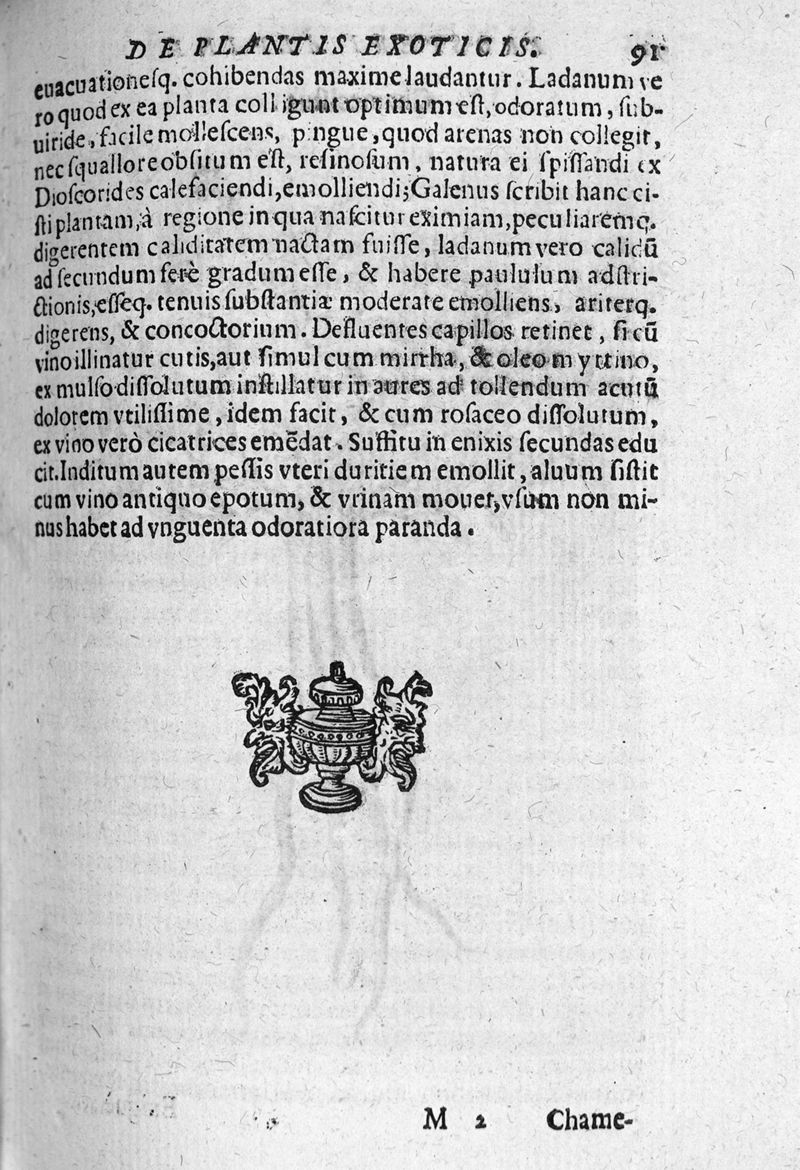 DE PLANTIS EXOTICIS. 91
euacuationeſq. cohibendas maxime laudantur. Ladanum ve
ro quod ex ea planta colligunt optimum eſt, odoratum, ſub-
uiride, facile molleſcens, pingue, quod arenas non collegit,
nec ſquallore obſitum eſt, reſinoſum, natura ei ſpiſſandi ex
Dioſcorides calefaciendi, emolliendi; Galenus ſcribit hanc ci-
ſti plantam, à regione in qua naſcitur eximiam, peculiaremq.
digerentem caliditatem nactam fuiſſe, ladanum vero calidũ
ad ſecundum ferè gradum eſſe, & habere paululum adſtri-
ctionis, eſſeq. tenuis ſubſtantiæ moderate emolliens, ariterq.
digerens, & concoctorium. Defluentes capillos retinet, ſi cũ
vino illinatur cutis, aut ſimul cum mirrha, & oleo myrtino,
ex mulſo diſſolutum inſtillatur in aures ad tollendum acutũ
dolorem vtiliſſime, idem facit, & cum roſaceo diſſolutum,
ex vino verò cicatrices emẽdat. Suffitu in enixis ſecundas edu
cit. Inditum autem peſſis vteri duritiem emollit, aluum ſiſtit
cum vino antiquo epotum, & vrinam mouet, vſum non mi-
nus habet ad vnguenta odoratiora paranda.
M 2 Chame-